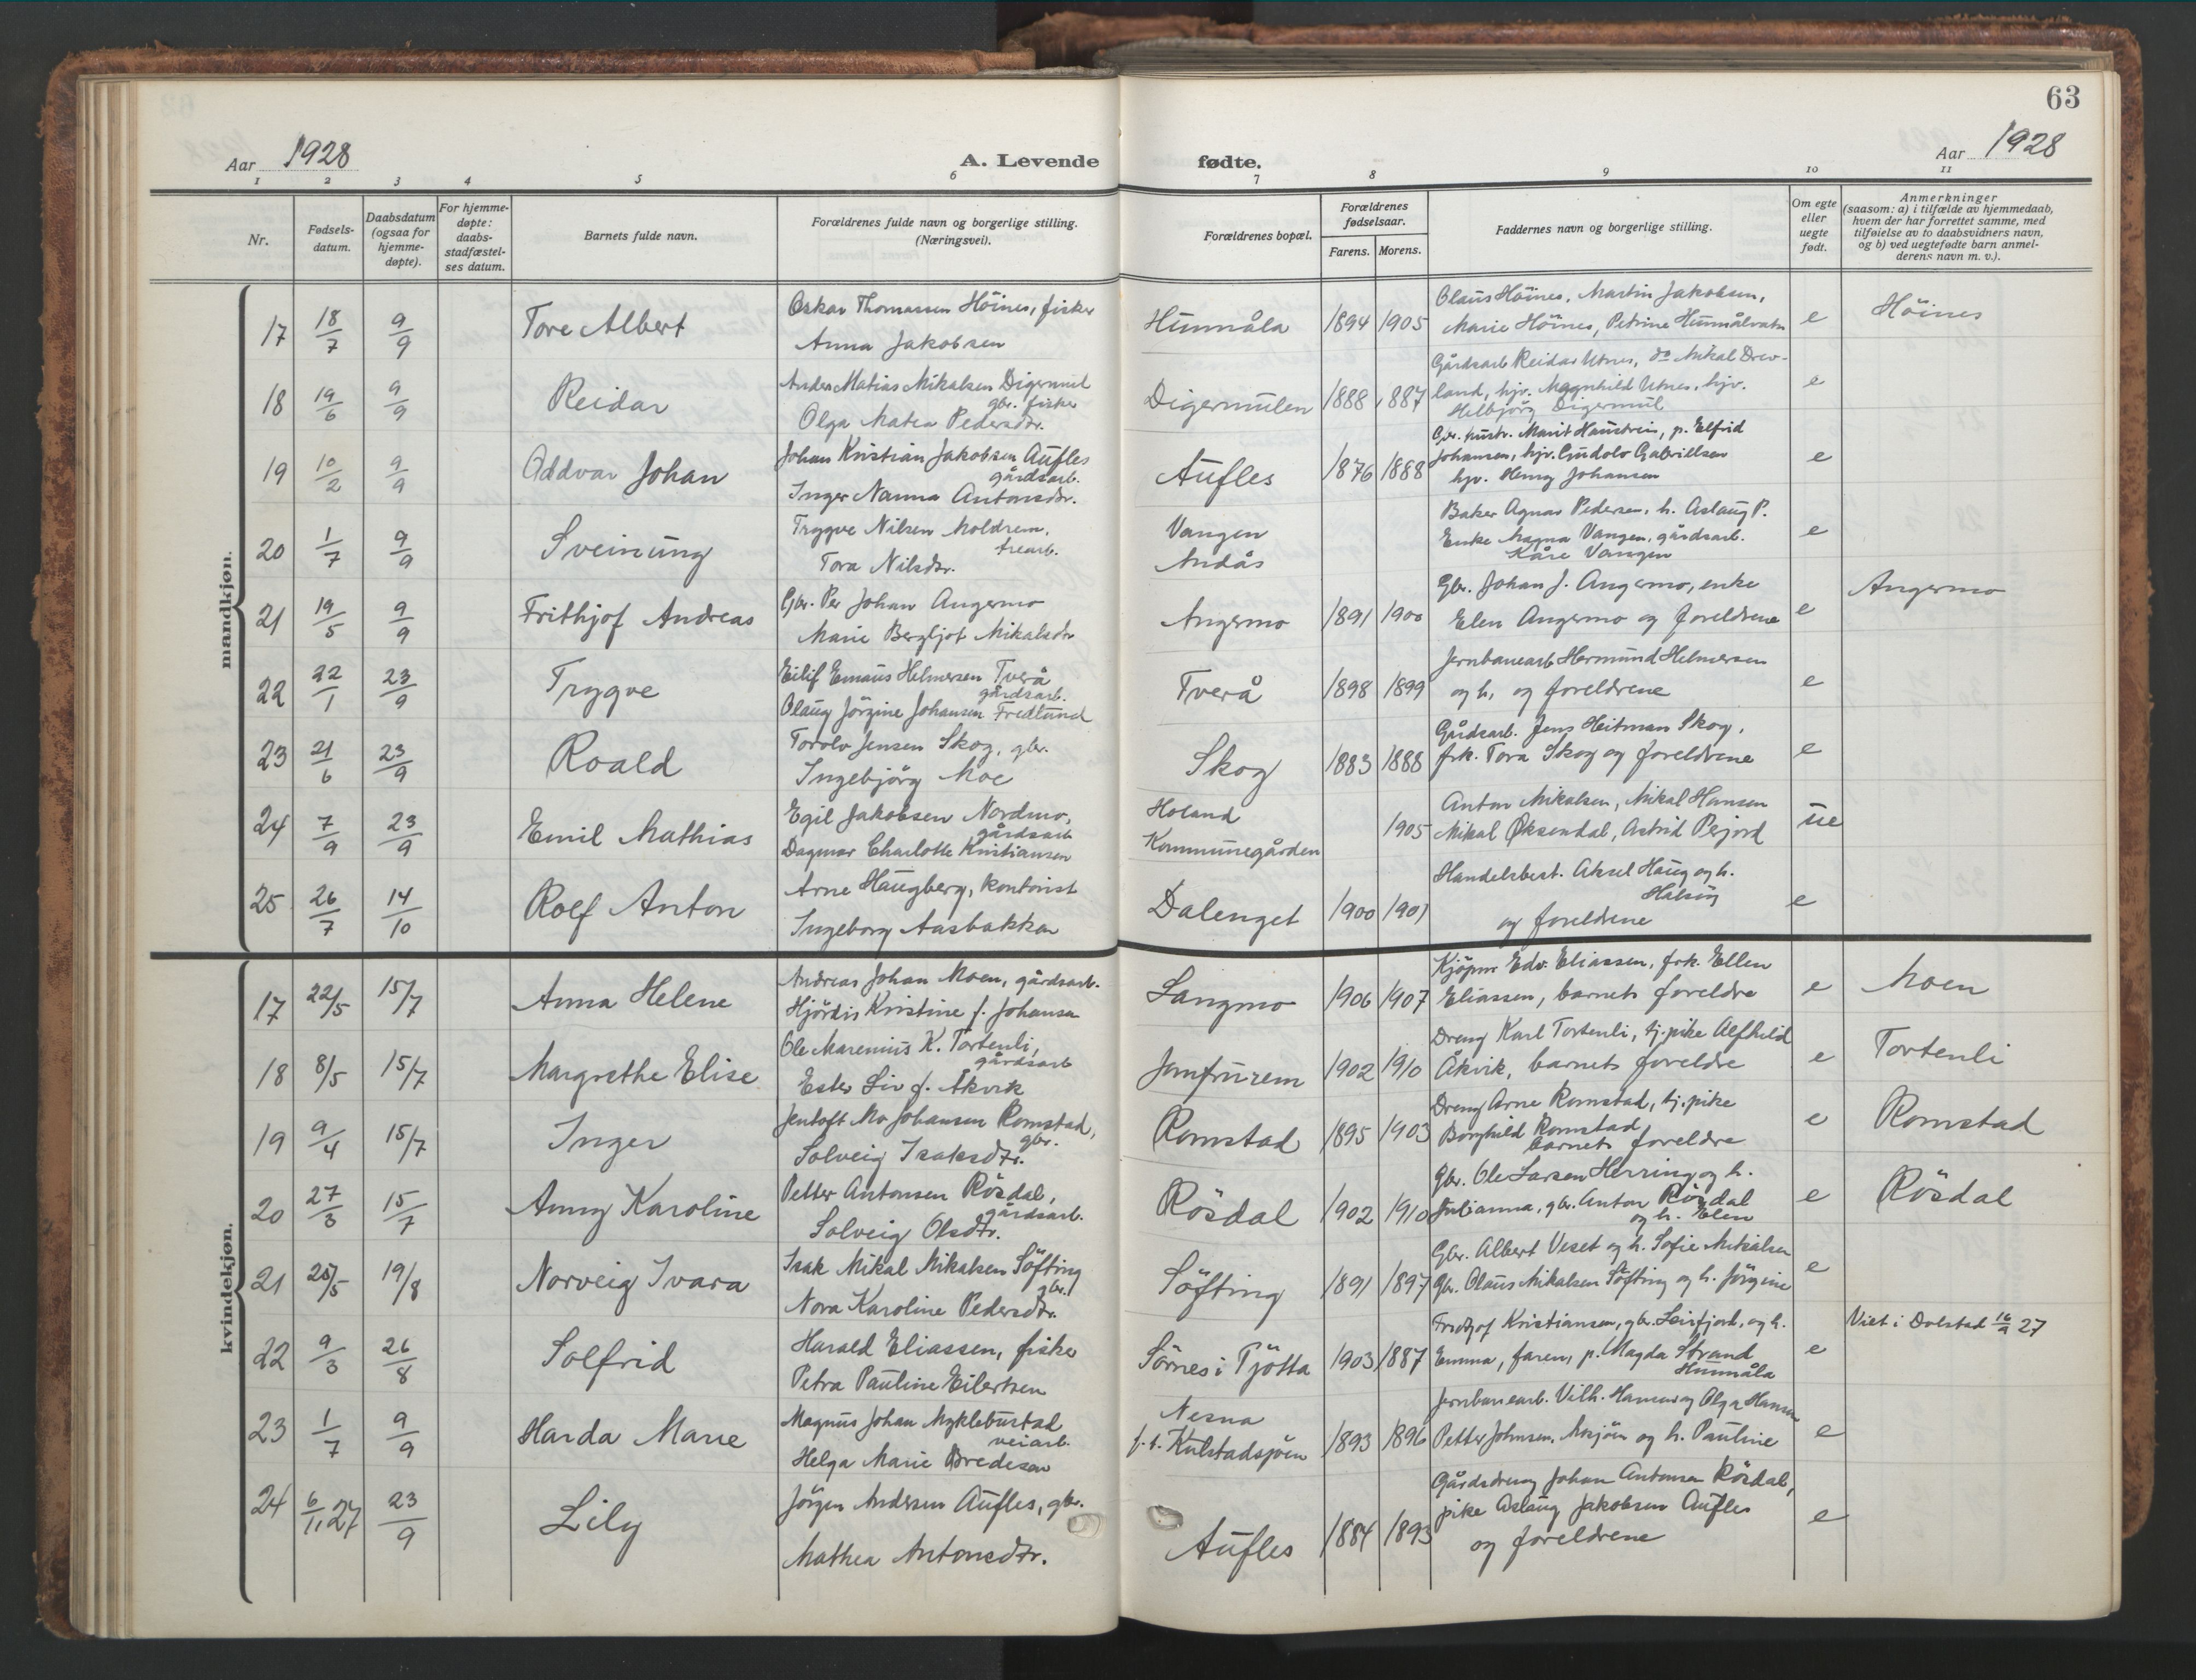 63
Aar 1928
A. Levende fødte.
Aar 1928
1 2 3 4 5 6 7 8 9 10 11
Nr.
Fødsels-
datum.
Daabsdatum
(ogsaa for
hjemme-
døpte).
For hjemme-
døpte:
daabs-
stadfæstel-
ses datum.
Barnets fulde navn.
Forældrenes fulde navn og borgerlige stilling.
(Næringsvei).
Forældrenes bopæl.
Forældrenes
fødselsaar.
Farens. Morens.
Faddernes navn og borgerlige stilling.
Om egte
eller
uegte
født.
Anmerkninger
(saasom: a) i tilfælde av hjemmedaab,
hvem der har forrettet samme, med
tilføielse av to daabsvidners navn,
og b) ved uegtefødte barn anmel-
derens navn m. v.).
mandkjøn.
17 18/7 9/9 Tore Albert
Oskar Thomassen Höines, fisker
Anna Jakobsen
Hunnåla 1894 1905
Olaus Höines, Martin Jakobsen,
Marie Höines, Petrine Hunnålvatn
e Höines
18 19/6 9/9 Reidar
Anders Matias Mikalsen Digermul
gbr. fisker
Olga Matea Pedersdtr.
Digermulen 1888 1887
Gårdsarb. Reidar Utnes, do Mikal Drev-
land, hjv. Magnhild Utnes, hjv.
Helbjörg Digermul
e
19 10/2 9/9 Oddvar Johan
Johan Kristian Jakobsen Aufles
gårdsarb.
Inger Nanna Antonsdtr.
Aufles 1876 1888
Gbr. hustr. Marit Haustrein, p. Elfrid
Johansen, hjv. Gudolv Gabrielsen
hjv. Henry Johansen
e
20 1/7 9/9 Sveinung
Trygve Nilsen Moldrem,
trearb.
Tora Nilsdtr.
Vangen
Andås
Baker Agnar Pedersen, h. Aslaug P.
Enke Magna Vangen, gårdsarb.
Kåre Vangen
e
21 19/5 9/9 Frithjof Andreas
Gbr. Per Johan Angermo
Marie Bergljot Mikalsdtr
Angermo 1891 1900
Gbr. Johan J. Angermo, enke
Elen Angermo og foreldrene
e Angermo
22 22/1 23/9 Trygve
Eilif Emaus Helmersen Tverå
gårdsarb.
Olaug Jörgine Johansen Fredlund
Tverå 1898 1899
Jernbanearb Hermund Helmersen
og h. og foreldrene
e
23 21/6 23/9 Roald
Torolv Jensen Skog, gbr.
Ingebjörg Moe
Skog 1883 1888
Gårdsarb. Jens Heitman Skog,
frk. Tora Skog og foreldrene
e
24 7/9 23/9 Emil Mathias
Egil Jakobsen Nordmo,
gårdsarb
Dagmar Charlotte Kristiansen
Holand
Kommunegården
1905
Anton Mikalsen, Mikal Hansen
Mikal Øksendal, Astrid Perjord
ue
25 26/7 14/10 Rolf Anton
Arne Haugberg, kontorist
Ingeborg Aasbakken
Dalenget 1900 1901
Handelsbest. Aksel Haug og h.
og foreldrene
e
kvindekjøn.
17 22/5 15/7 Anna Helene
Andreas Johan Moen, gårdsarb.
Hjördis Kristine f. Johansen
Langmo 1906 1907
Kjöpm Edv. Eliassen, frk. Ellen
Eliassen, barnets foreldre
e Moen
18 8/5 15/7 Margrethe Elise
Ole Marenius K. Tortenli,
gårdsarb
Ester Liv f. Åkvik
Jomfrurem 1902 1910
Dreng Karl Tortenli, tj.pike Alfhild
Åkvik, barnets foreldre
e Tortenli
19 9/4 15/7 Inger
Jentoft Mo Johansen Romstad,
gbr.
Solveig Isaksdtr.
Romstad 1895 1903
Dreng Arne Romstad, tj.pike
Borghild Romstad
barnets foreldre
e Romstad
20 27/3 15/7 Anny Karoline
Petter Antonsen Rösdal,
gårdsarb.
Solveig Olsdtr.
Rösdal 1902 1910
Gbr. Ole Larsen Herring og h.
Julianna, gbr. Anton Rösdal
og h. Elen
e Rösdal
21 25/5 19/8 Norveig Ivara
Isak Mikal Mikalsen Söfting
gbr.
Nora Karoline Pedersdtr.
Söfting 1891 1897
Gbr. Albert Veset og h. Sofie Mikalsen
Gbr. Olaus Mikalsen Söfting og h. Jörgine
e
22 9/3 26/8 Solfrid
Harald Eliassen, fisker
Petra Pauline Eilertsen
Sörnes i Tjötta 1903 1887
Fridtjof Kristiansen, gbr. Leirfjord, og h.
Emma, faren, p. Magda Strand
Hunnåla
e Viet i Dolstad 16/9 27
23 1/7 9/9 Harda Marie
Magnus Johan Myklebustad
veiarb.
Helga Marie Bredesen
Nesna
f. t. Kulstadsjöen 1893 1896
Jernbanearb. Vilh. Hansen og Olga Hansen
Petter Johnsen, Mosjöen og h. Pauline
e
24 6/11 27 23/9 Lily
Jörgen Andersen Aufles, gbr.
Mathea Antonsdtr.
Aufles 1884 1893
Gårdsdreng Johan Antonsen Rösdal,
pike Aslaug Jakobsen Aufles
og foreldrene
e